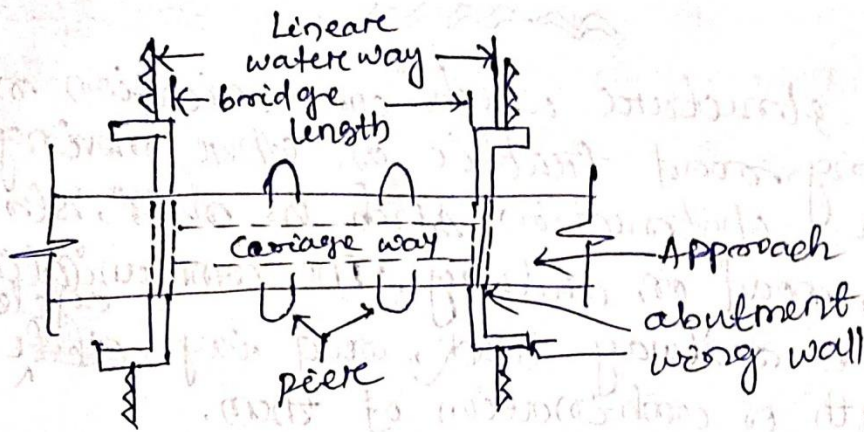 Lineare
watere way
bridge
length
Carriage way
Approach
abutment
wing wall
piere